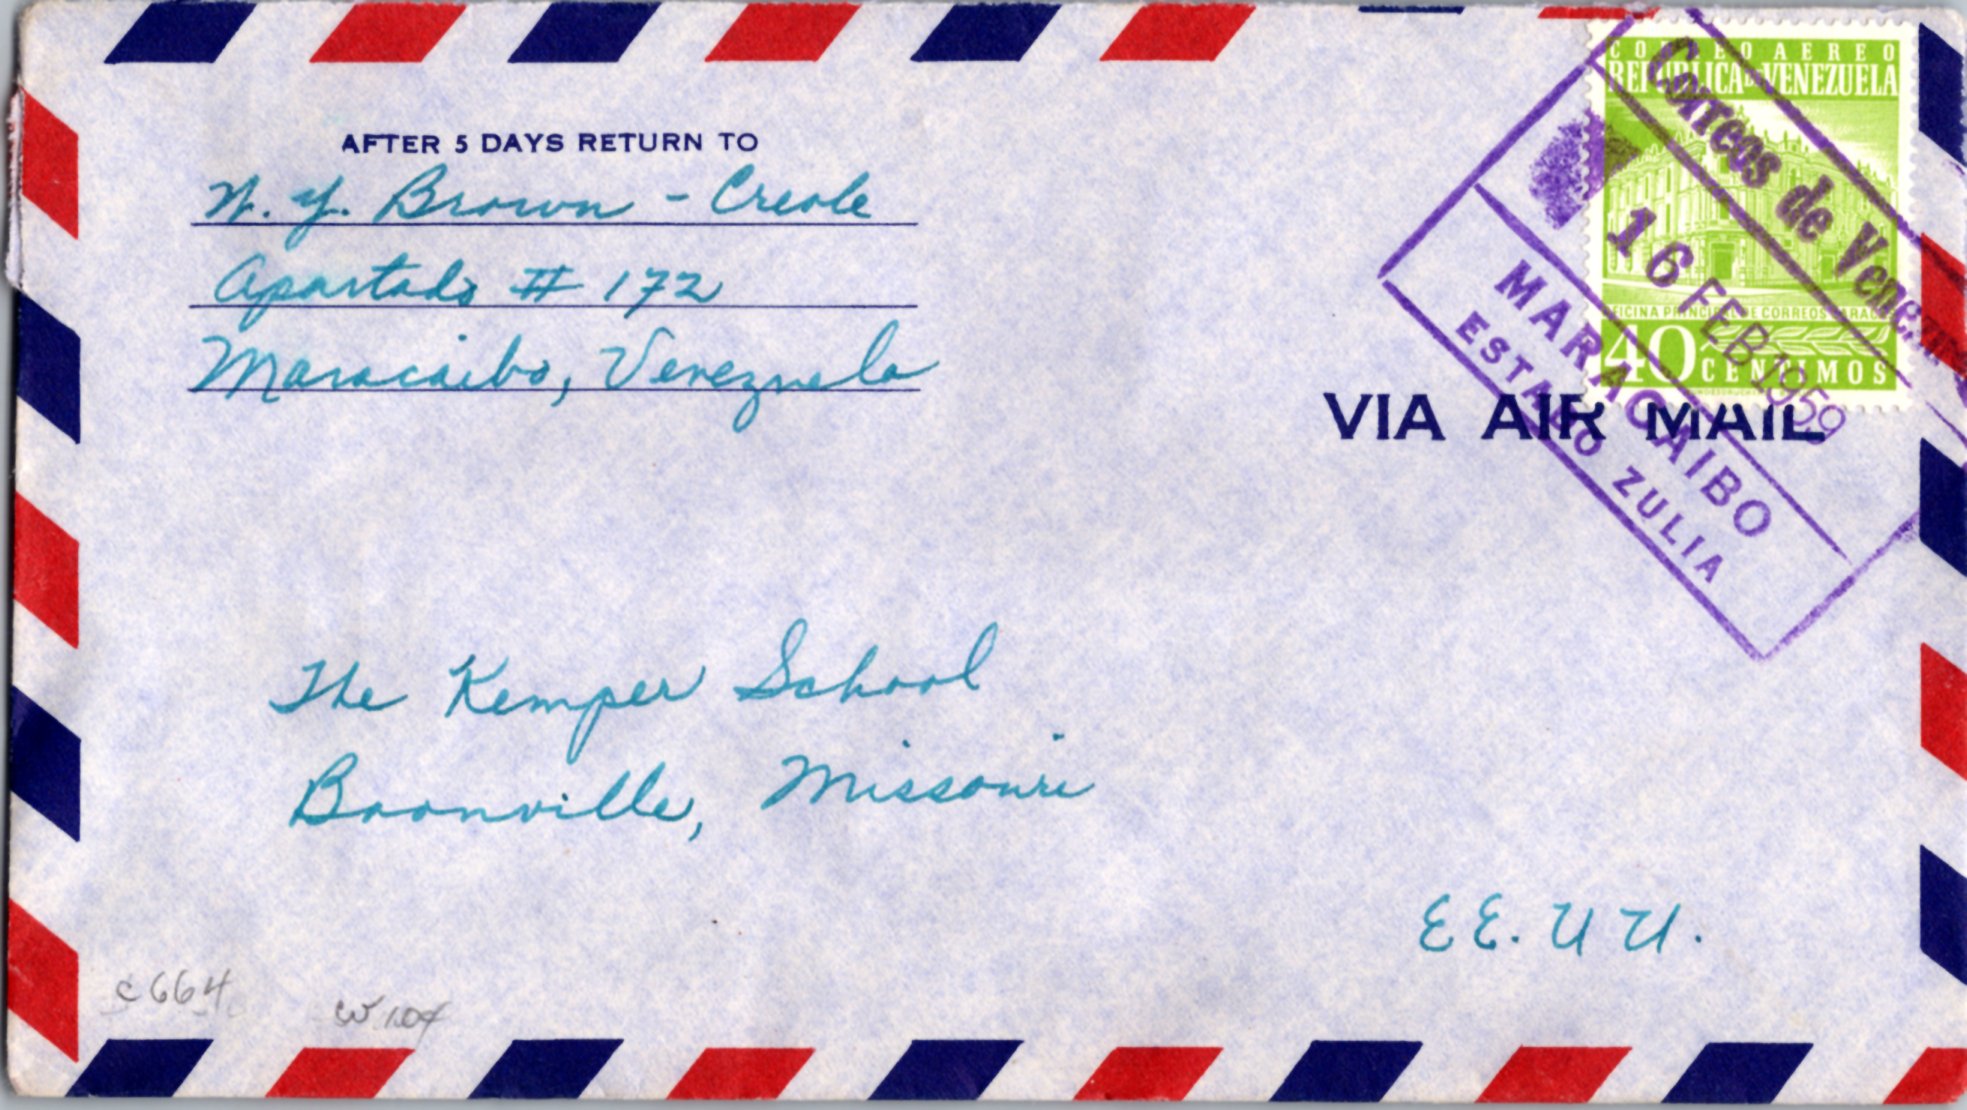 AFTER 5 DAYS RETURN TO
N. Y. Brown - Creole
Apartado # 172
Maracaibo, Venezuela
CORREO AEREO
REPUBLICA DE VENEZUELA
OFICINA PRINCIPAL DE CORREOS CARACAS
40 CENTIMOS
Correos de Venezuela
16 FEB 1959
MARACAIBO
ESTADO ZULIA
VIA AIR MAIL
The Kemper School
Boonville, Missouri
EE. UU.
c664